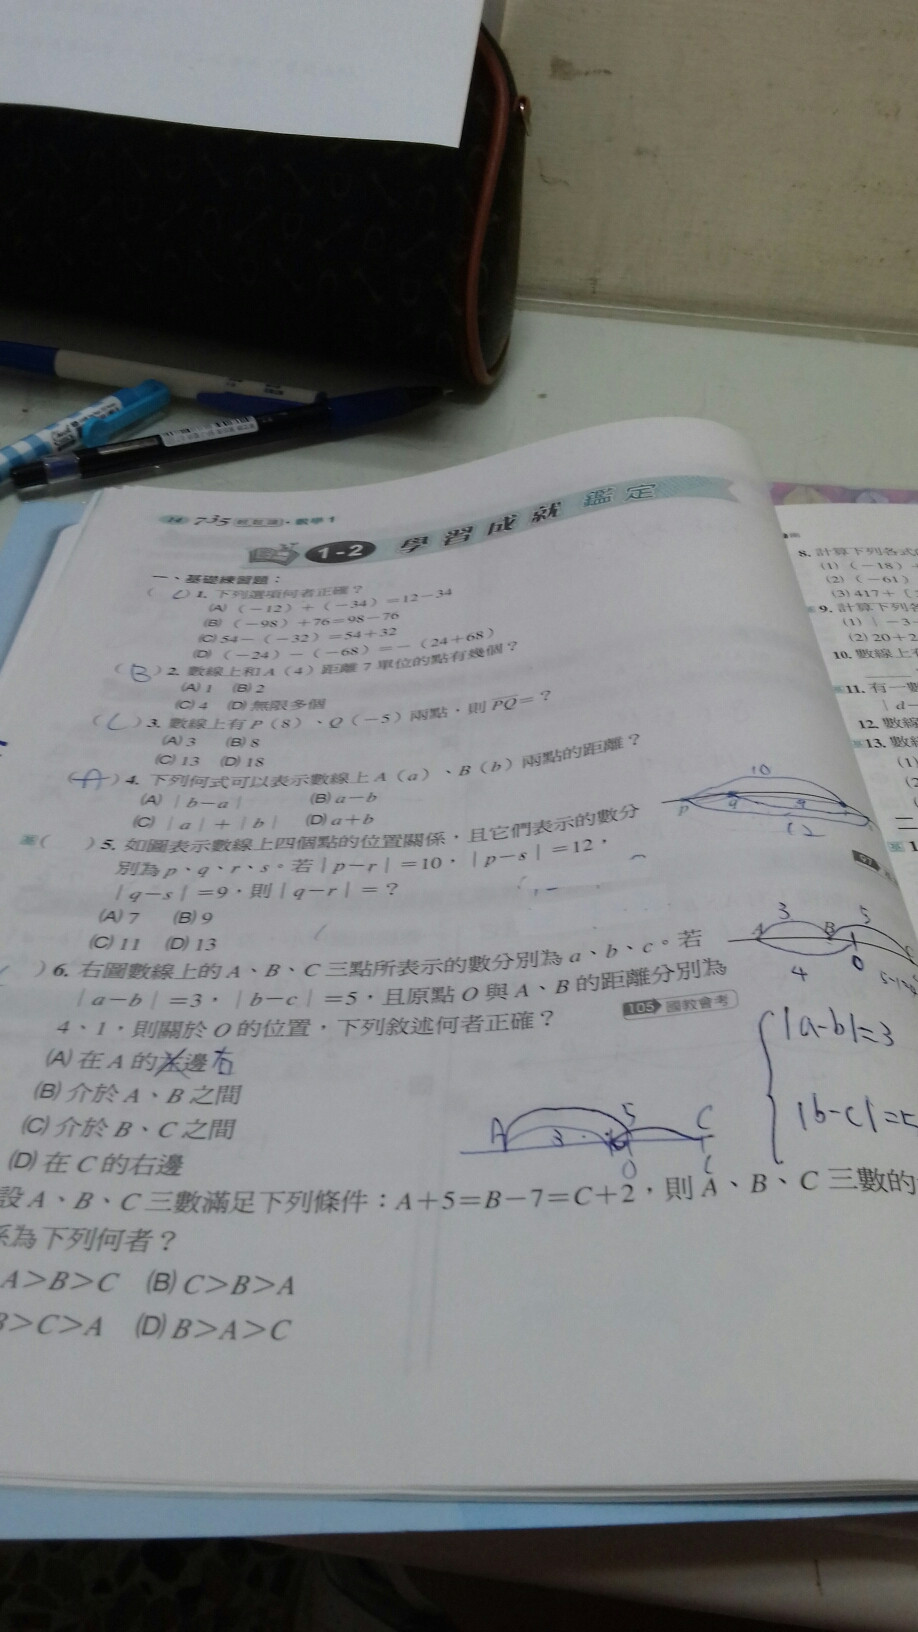 14 735 輕鬆讀・數學1
1-2 學習成就 鑑定
一、基礎練習題：
( C ) 1. 下列選項何者正確？
(A) (－12)＋(－34)＝12－34
(B) (－98)＋76＝98－76
(C) 54－(－32)＝54＋32
(D) (－24)－(－68)＝－(24＋68)
( B ) 2. 數線上和 A (4) 距離 7 單位的點有幾個？
(A) 1 (B) 2
(C) 4 (D) 無限多個
( C ) 3. 數線上有 P (8)、Q (－5) 兩點，則 PQ＝？
(A) 3 (B) 8
(C) 13 (D) 18
( A ) 4. 下列何式可以表示數線上 A (a)、B (b) 兩點的距離？
(A) |b－a| (B) a－b
(C) |a|＋|b| (D) a＋b
( ) 5. 如圖表示數線上四個點的位置關係，且它們表示的數分
別為 p、q、r、s。若 |p－r|＝10，|p－s|＝12，
|q－s|＝9，則 |q－r|＝？
(A) 7 (B) 9
(C) 11 (D) 13
10
p q
9
12
) 6. 右圖數線上的 A、B、C 三點所表示的數分別為 a、b、c。若
|a－b|＝3，|b－c|＝5，且原點 O 與 A、B 的距離分別為
4、1，則關於 O 的位置，下列敘述何者正確？
105 國教會考
(A) 在 A 的左邊 右
(B) 介於 A、B 之間
(C) 介於 B、C 之間
(D) 在 C 的右邊
3 5
A B C
4 O
|a-b|=3
|b-c|=5
A 5 C
3
O
設 A、B、C 三數滿足下列條件：A＋5＝B－7＝C＋2，則 A、B、C 三數的
係為下列何者？
A＞B＞C (B) C＞B＞A
B＞C＞A (D) B＞A＞C
8. 計算下列各式
(1) (－18)＋
(2) (－61)
(3) 417＋
9. 計算下列各
(1) |－3－
(2) 20＋2
10. 數線上有
11. 有一數
|d－
12. 數線
13. 數線
(1)
(2)
二